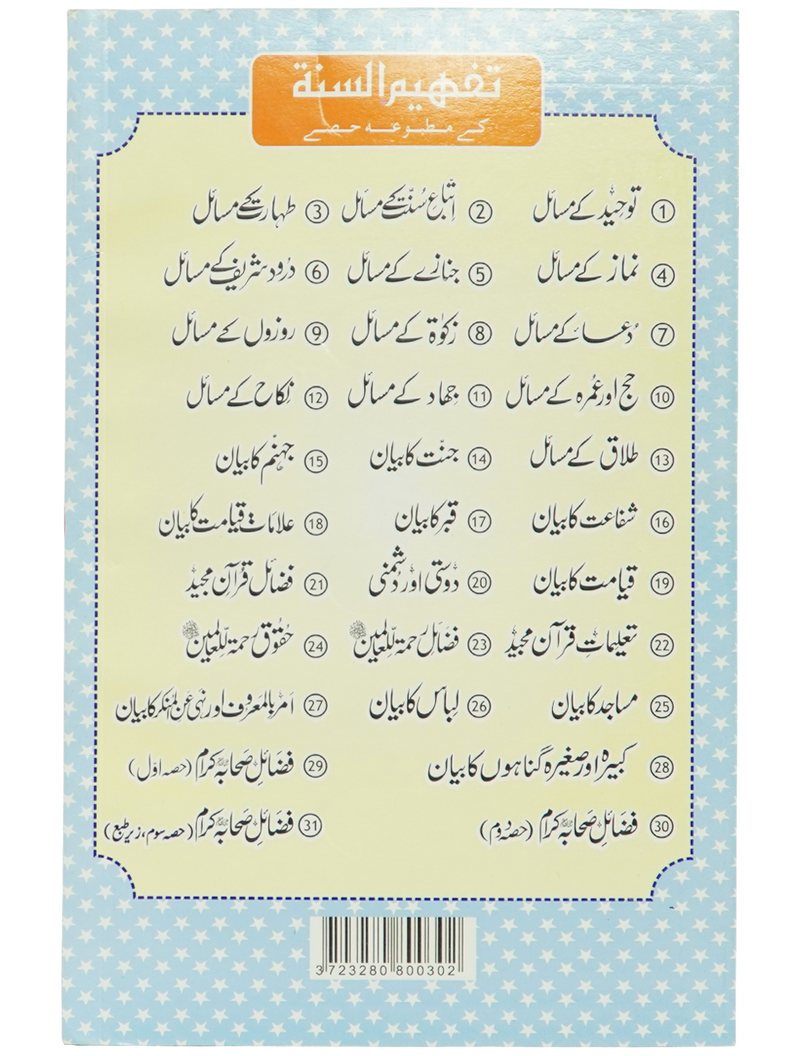 تفهيم السنة
کے مطبوعہ حصے
① توحید کے مسائل ② اتباعِ سُنّت کے مسائل ③ طہارت کے مسائل
④ نماز کے مسائل ⑤ جنازے کے مسائل ⑥ درود شریف کے مسائل
⑦ دُعا کے مسائل ⑧ زکوٰۃ کے مسائل ⑨ روزوں کے مسائل
⑩ حج اور عُمرہ کے مسائل ⑪ جہاد کے مسائل ⑫ نکاح کے مسائل
⑬ طلاق کے مسائل ⑭ جنت کا بیان ⑮ جہنم کا بیان
⑯ شفاعت کا بیان ⑰ قبر کا بیان ⑱ علاماتِ قیامت کا بیان
⑲ قیامت کا بیان ⑳ دوستی اور دُشمنی ㉑ فضائل قرآن مجید
㉒ تعلیماتِ قرآن مجید ㉓ فضائل رحمۃ للعالمین ﷺ ㉔ حقوق رحمۃ للعالمین ﷺ
㉕ مساجد کا بیان ㉖ لباس کا بیان ㉗ امر بالمعروف اور نہی عن المنکر کا بیان
㉘ کبیرہ اور صغیرہ گناہوں کا بیان ㉙ فضائلِ صحابہ کرام (حصہ اوّل)
㉚ فضائلِ صحابہ کرام (حصہ دوم) ㉛ فضائلِ صحابہ کرام (حصہ سوم، زیر طبع)
3723280800302